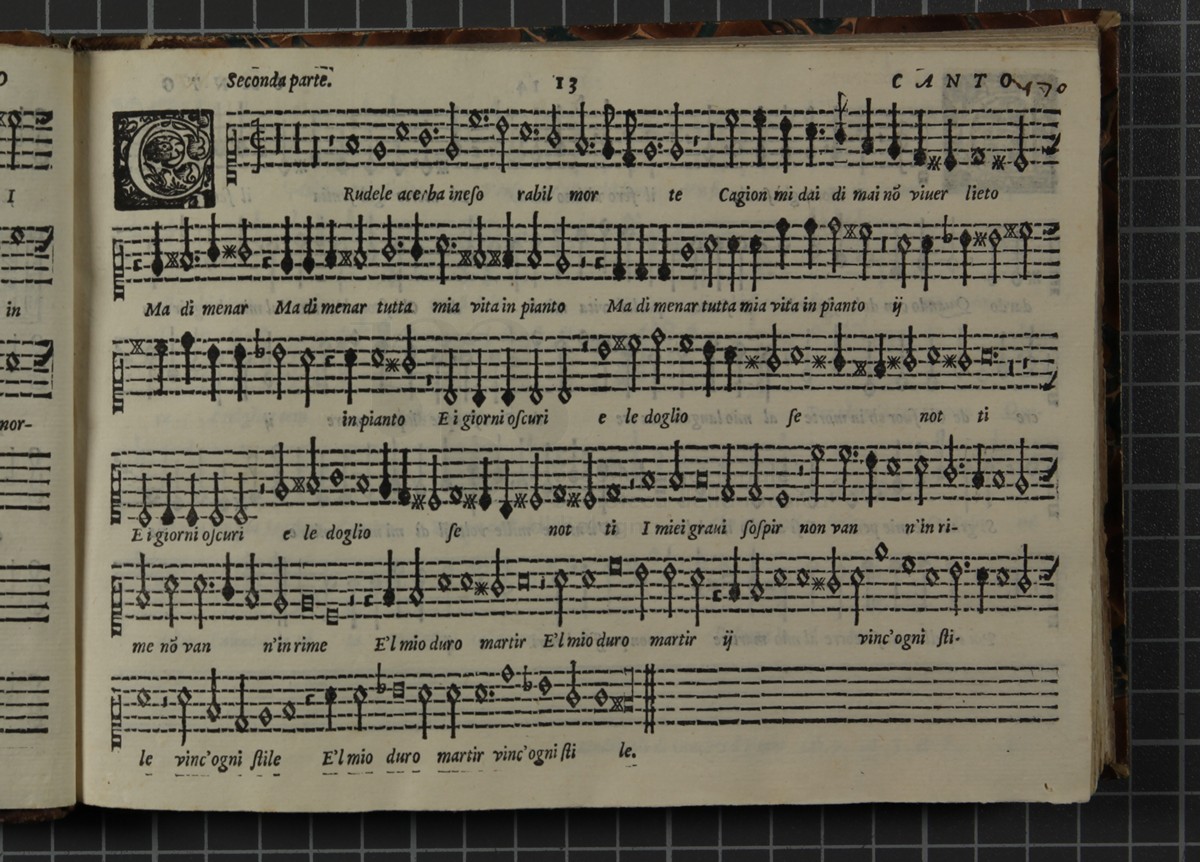 Seconda parte. 13 CANTO
CRudele acerba ineso rabil mor te Cagion mi dai di mai nō viuer lieto
Ma di menar Ma di menar tutta mia vita in pianto Ma di menar tutta mia vita in pianto ij
in pianto E i giorni oscuri e le doglio se not ti
E i giorni oscuri e le doglio se not ti I miei graui sospir non van n'in ri-
me nō van n'in rime E'l mio duro martir E'l mio duro martir ij vinc'ogni sti-
le vinc'ogni stile E'l mio duro martir vinc'ogni sti le.
I
in
mor-